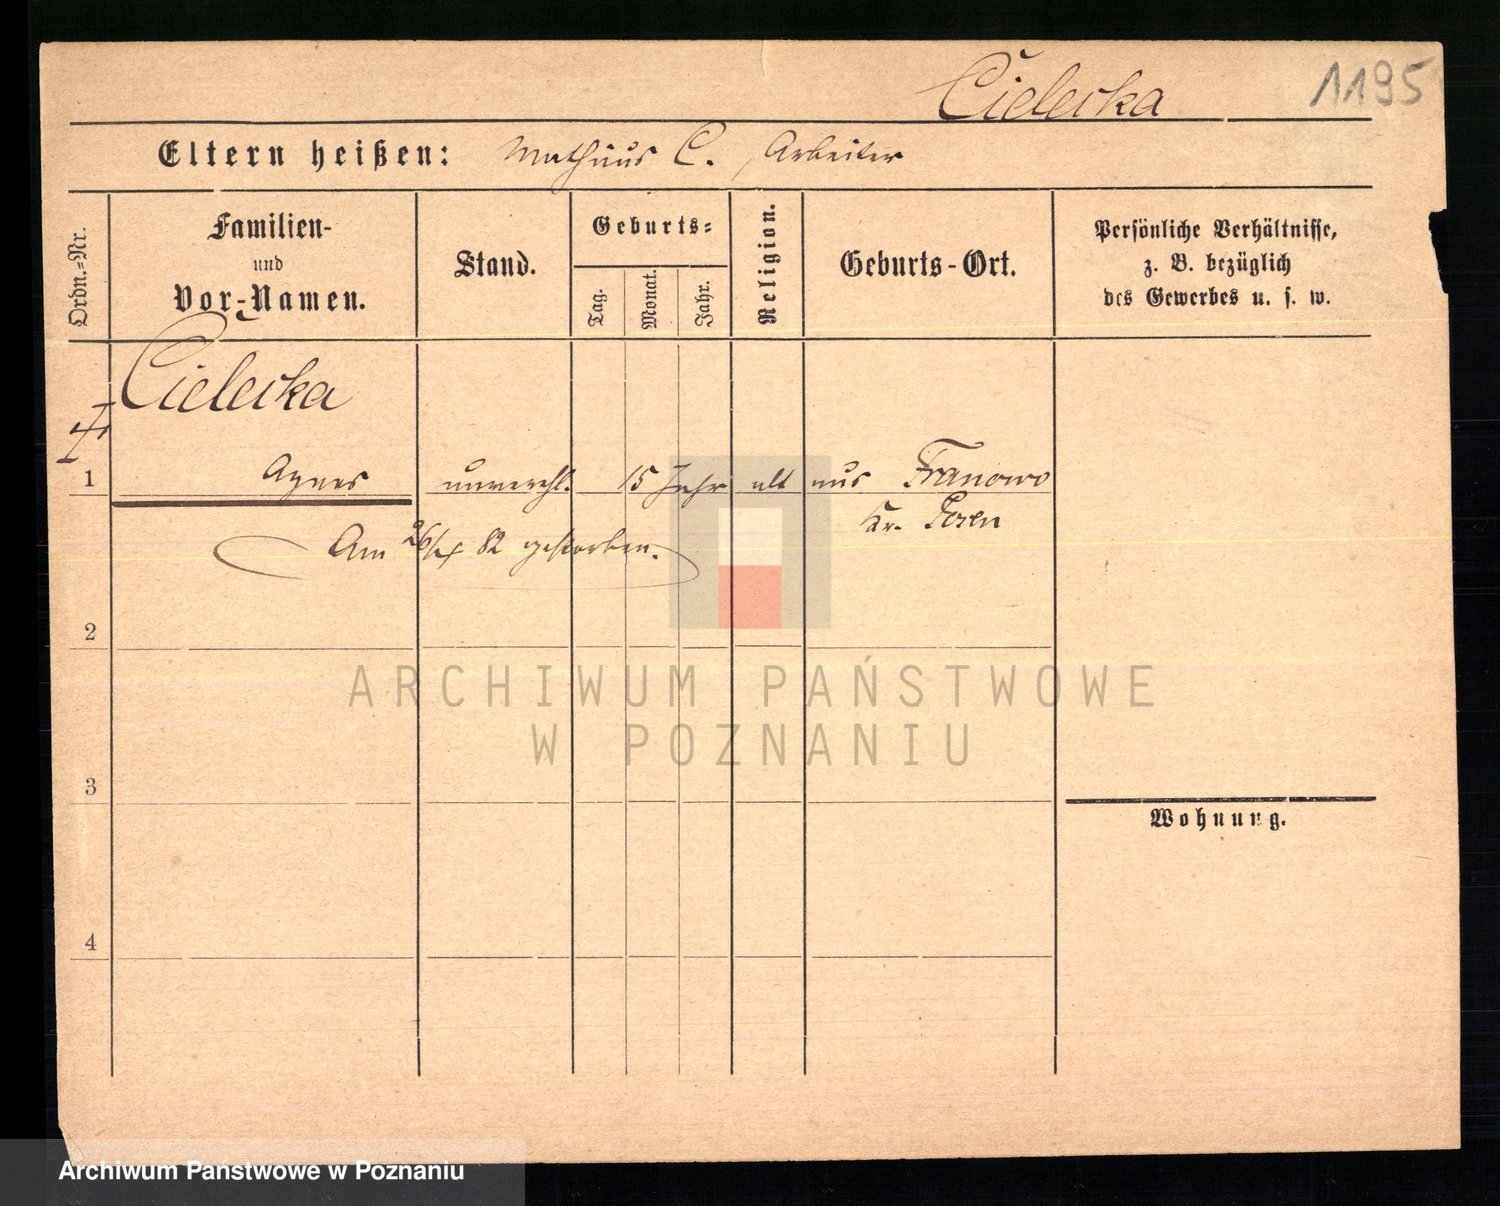 Cielecka 1195
Eltern heißen: Mathäus C., Arbeiter
Ordn.=Nr.
Familien-
und
Vor-Namen.
Stand.
Geburts=
Tag.
Monat.
Jahr.
Religion.
Geburts-Ort.
Persönliche Verhältnisse,
z. B. bezüglich
des Gewerbes u. s. w.
Cielecka
1 Agnes unverehl. 15 Jahr alt aus Franowo
Kr. Posen
Am 82 gestorben.
2
3
4
Wohnung.
ARCHIWUM PAŃSTWOWE
W POZNANIU
Archiwum Państwowe w Poznaniu